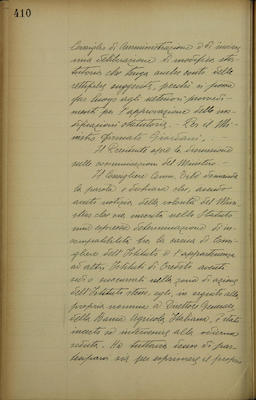 410
Consiglio di Amministrazione e di nuova
una deliberazione di modifica sta-
tutaria che tenga anche conto delle
suggerite, perché si possa
far luogo agli ulteriori provvedi-
menti per l'approvazione delle mo-
dificazioni statutarie. - Per il Mi-
nistro firmato
Il Presidente apre la discussione
sulle comunicazioni del Ministro -
Il Consigliere Comm. domanda
la parola e dichiara che, avendo
avuto notizia della volontà del Mini-
stro che sia inserita nello Statuto
una espressa determinazione di in-
compatibilità tra la carica di Consi-
gliere dell'Istituto e l'appartenenza
ad altri Istituti di Credito aventi
sedi o succursali nella zona di azione
dell'Istituto stesso, egli, in seguito alla
propria nomina a Direttore Generale
della Banca Agricola Italiana, è stato
incerto se intervenire alla odierna
seduta. Ha tuttavia deciso di par-
teciparvi sia per esprimere il proprio